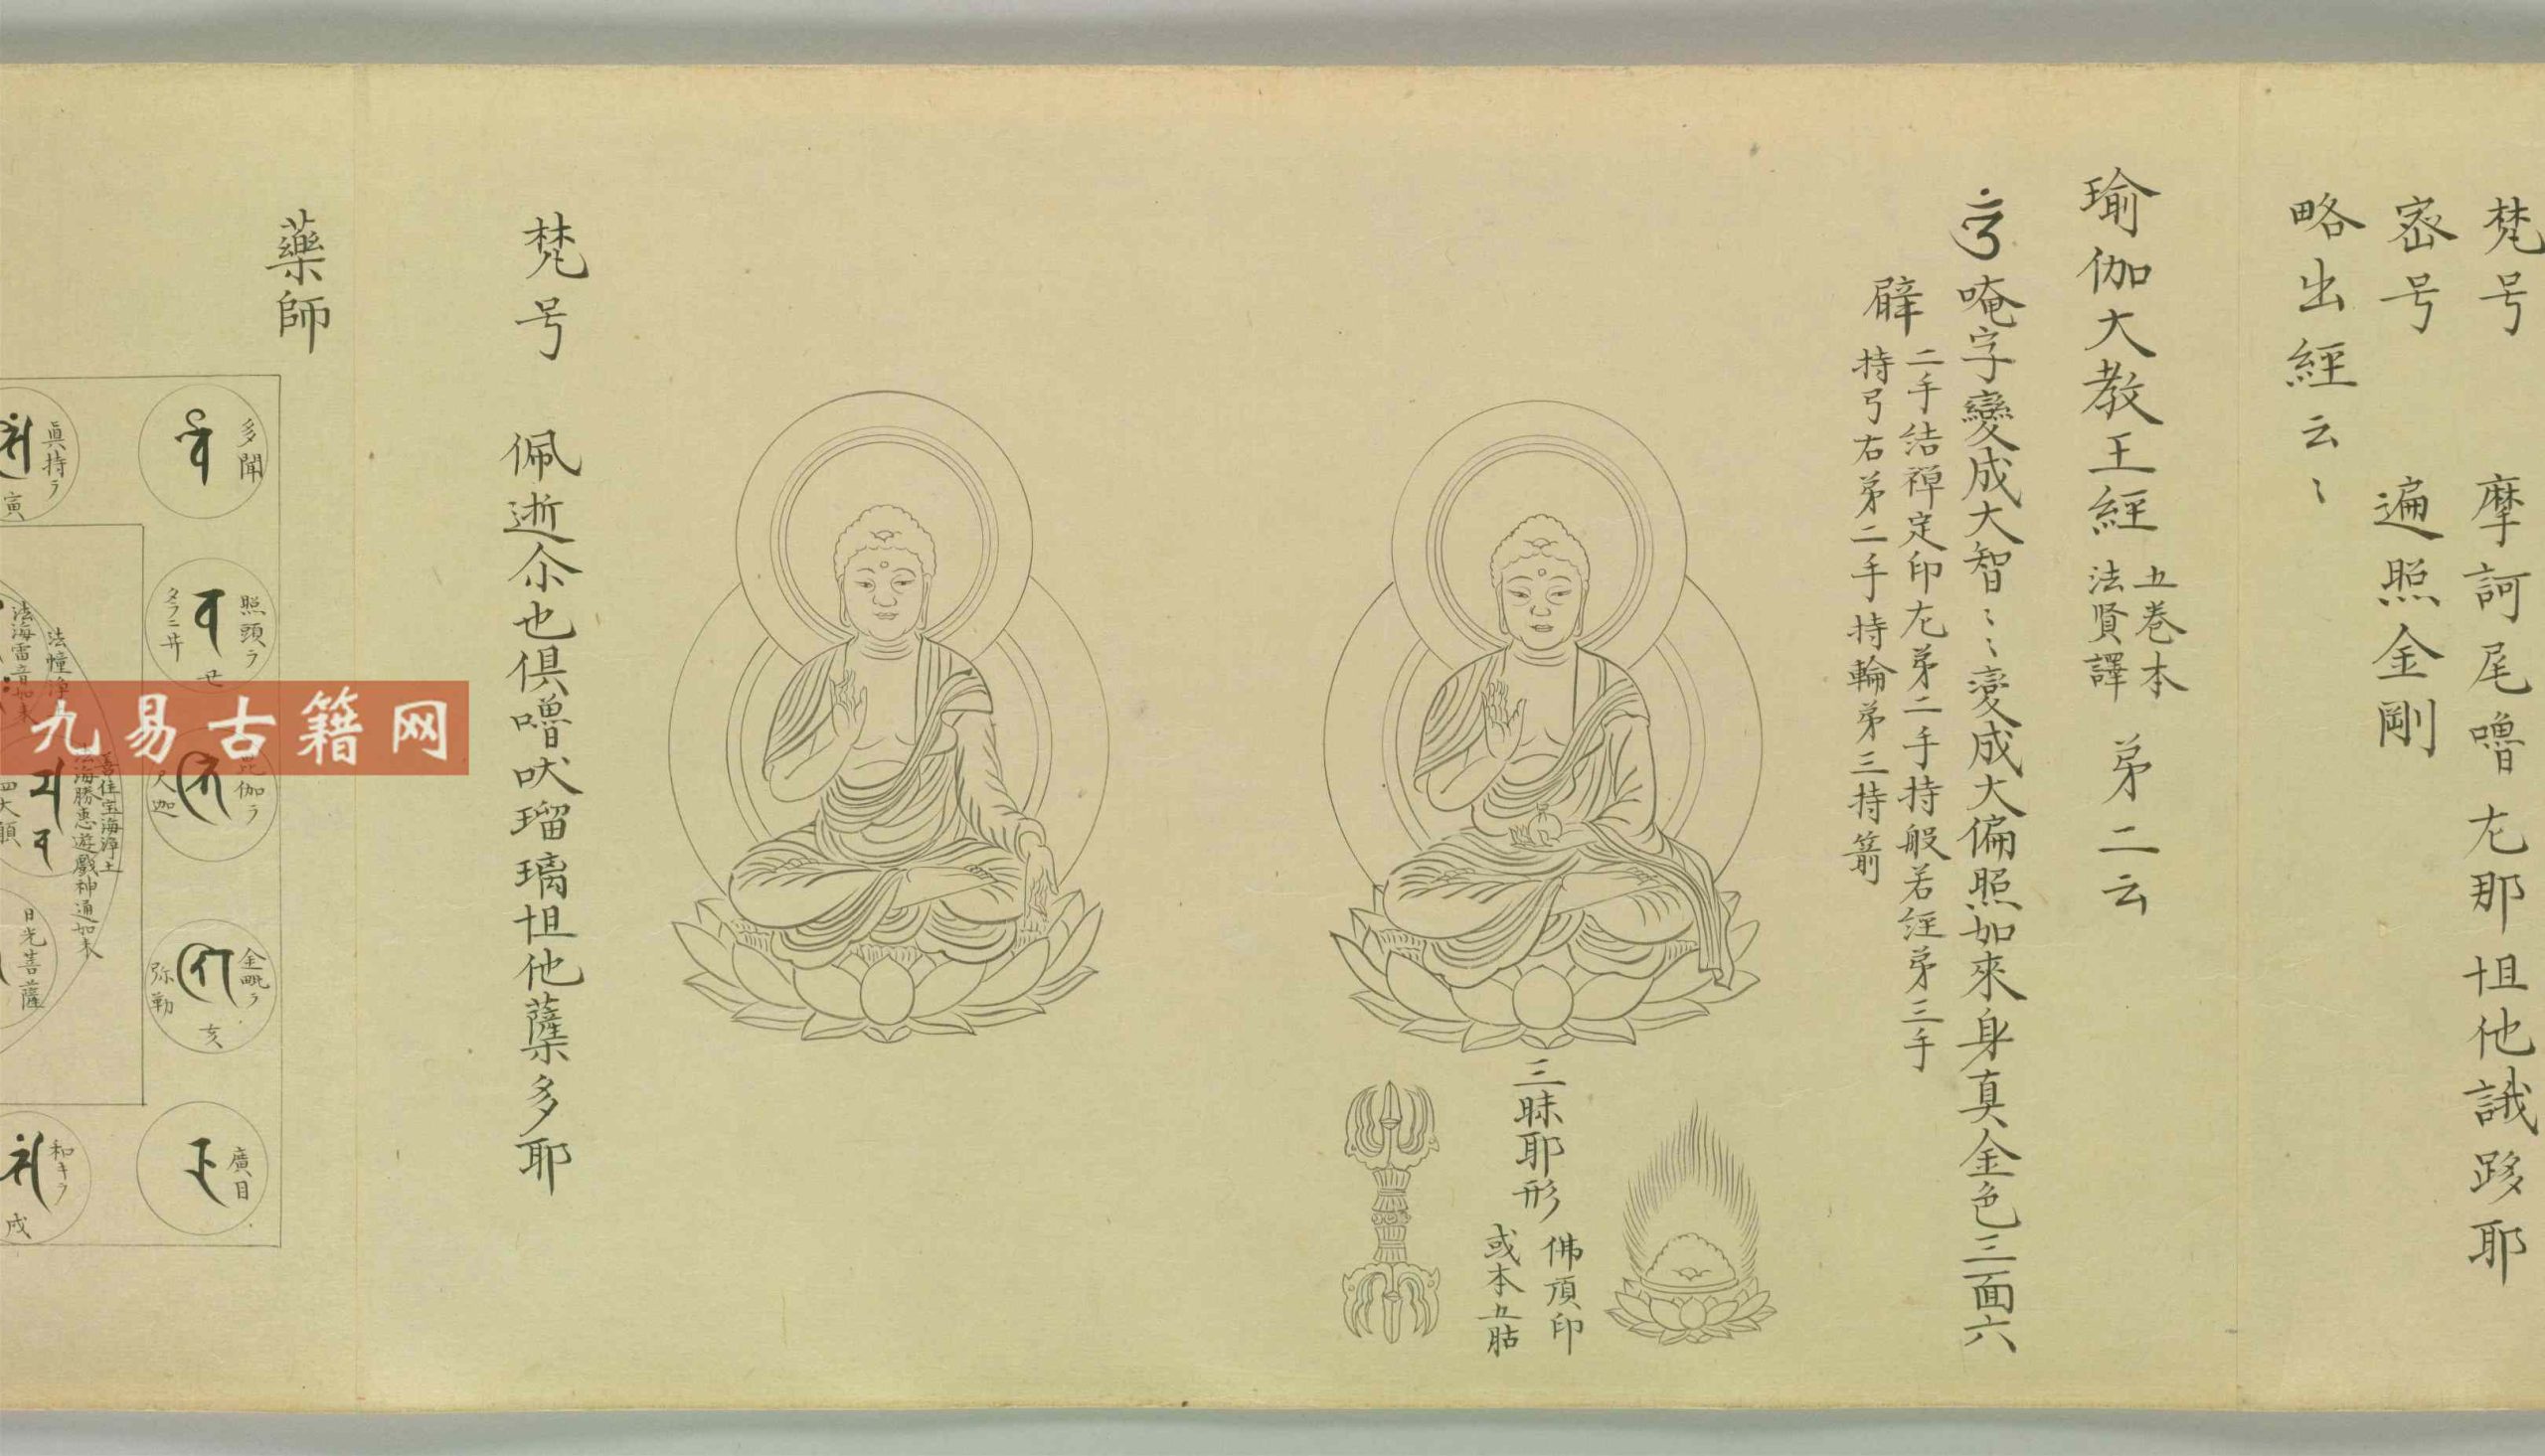 梵号 摩訶尾嚕尢那怛他誐跢耶
宻号 遍照金剛
略出經云〻
瑜伽大教王經 五巻本 法賢譯 弟二云
唵字變成大智〻〻變成大偏照如來身真金色三面六
辟 二手结禪定印尢弟二手持般若経弟三手
持弓右弟二手持輪弟三持箭
三昧耶形
佛頂印
或本五肪
梵号 佩逝尒也俱嚕吠瑠璃怛他蘖多耶
藥師
多聞
照頭ラ
丗
伽ラ
尺迦
金毗ラ
弥勒
亥
廣目
真持ラ
寅
法幢
法海雷音如来
善住宝海淨土
法海勝恵遊戯神通如来
四大願
日光菩薩
和キラ
戌
九易古籍网